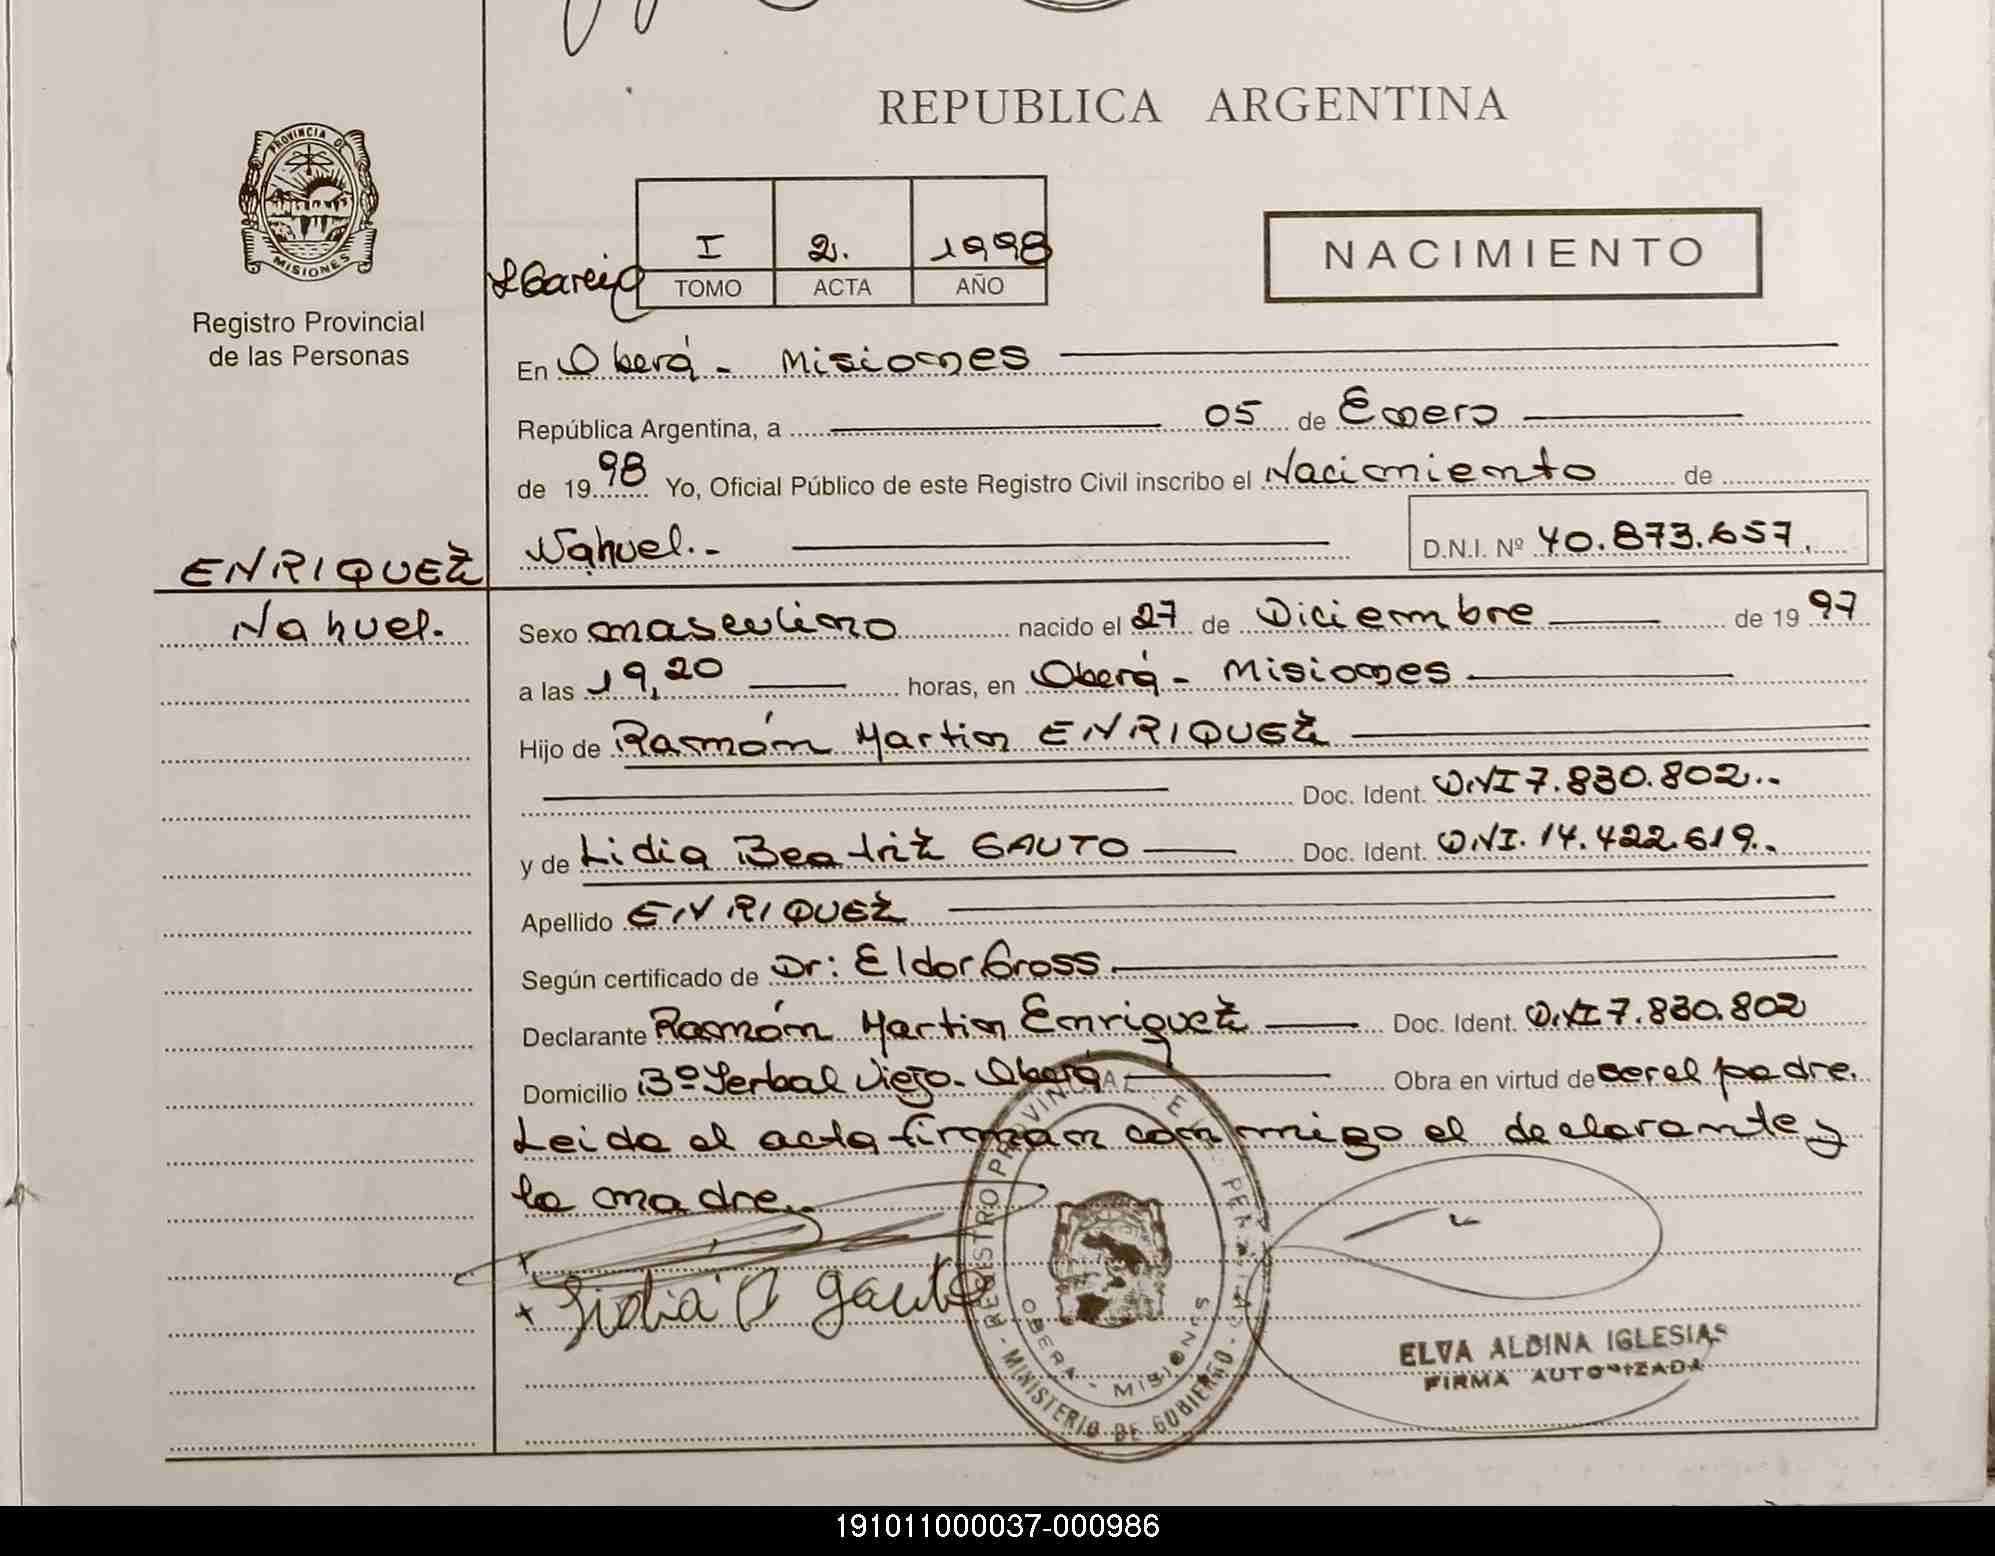 REPUBLICA ARGENTINA
PROVINCIA DE
MISIONES
Registro Provincial
de las Personas
I 2. 1998
TOMO ACTA AÑO
NACIMIENTO
En Oberá - Misiones
República Argentina, a 05 de Enero
de 1998 Yo, Oficial Público de este Registro Civil inscribo el Nacimiento de
Nahuel.- D.N.I. Nº 40.873.657.
ENRIQUEZ
Nahuel.
Sexo masculino nacido el 27 de Diciembre de 1997
a las 19,20 horas, en Oberá - Misiones
Hijo de Ramón Martin ENRIQUEZ
Doc. Ident. D.N.I 7.830.802..
y de Lidia Beatriz GAUTO Doc. Ident. D.N.I. 14.422.619..
Apellido ENRIQUEZ
Según certificado de Dr: Eldor Gross
Declarante Ramón Martin Enriquez Doc. Ident. D.N.I 7.830.802
Domicilio Bº Yerbal Viejo. Oberá Obra en virtud de ser el padre.
Leida el acta firman conmigo el declarante y
la madre..
Lidia B Gauto
REGISTRO PROVINCIAL DE LAS PERSONAS
OBERA - MISIONES
- MINISTERIO DE GOBIERNO -
ELVA ALBINA IGLESIAS
FIRMA AUTORIZADA
191011000037-000986